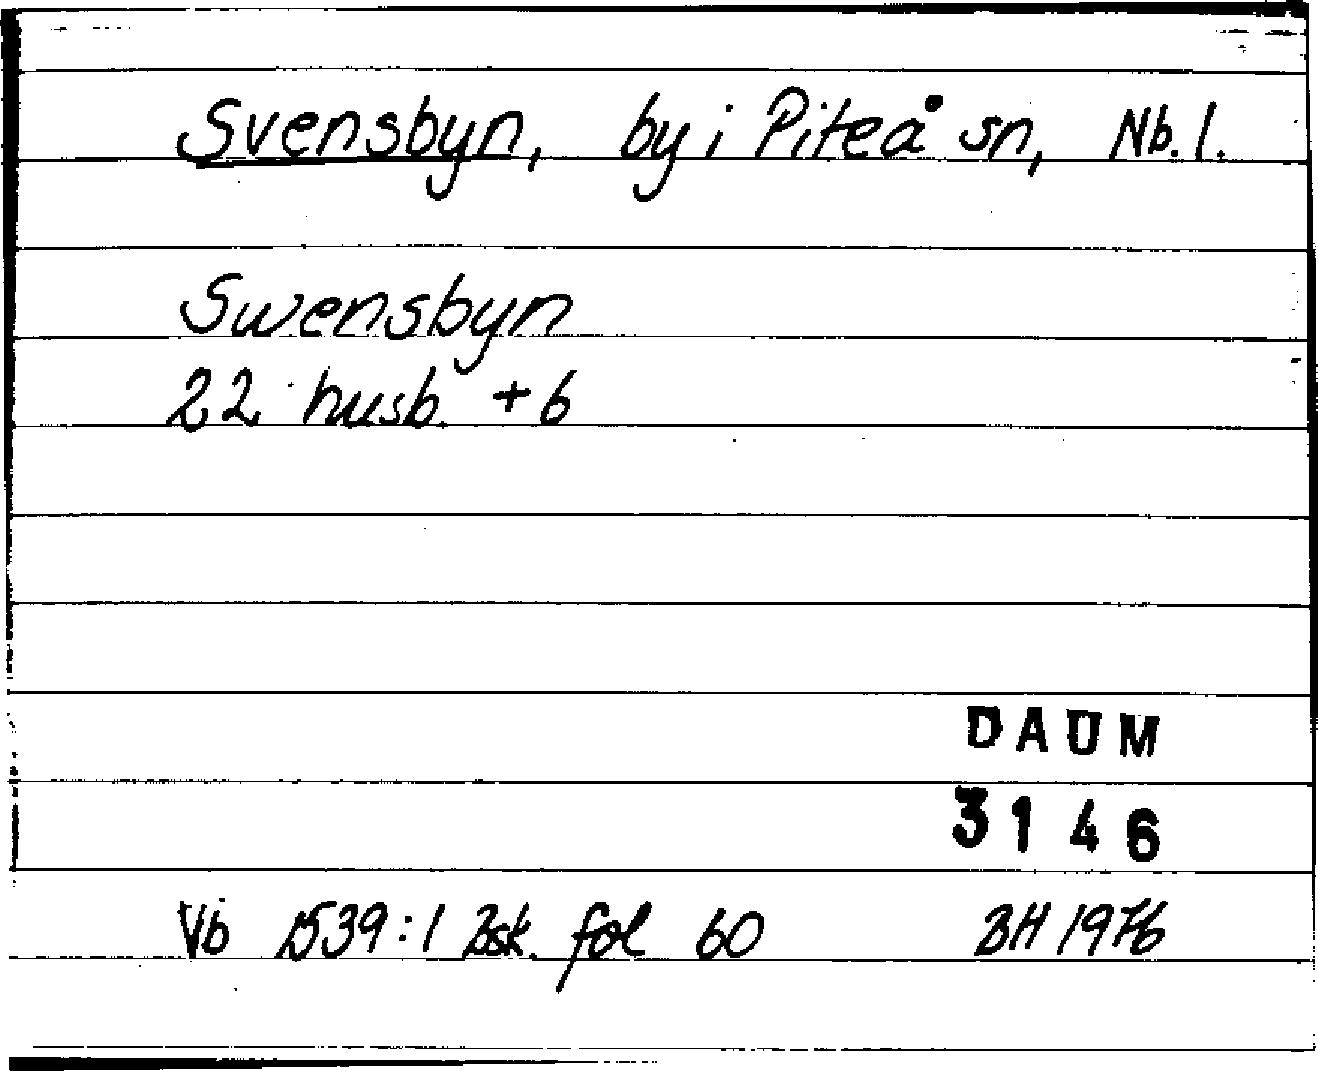 Svensbyn, by i Piteå sn, Nb. l.
Swensbyn
22 husb. + 6
DAUM
3146
Vb 1539:1 Bsk. fol 60 BH 1976